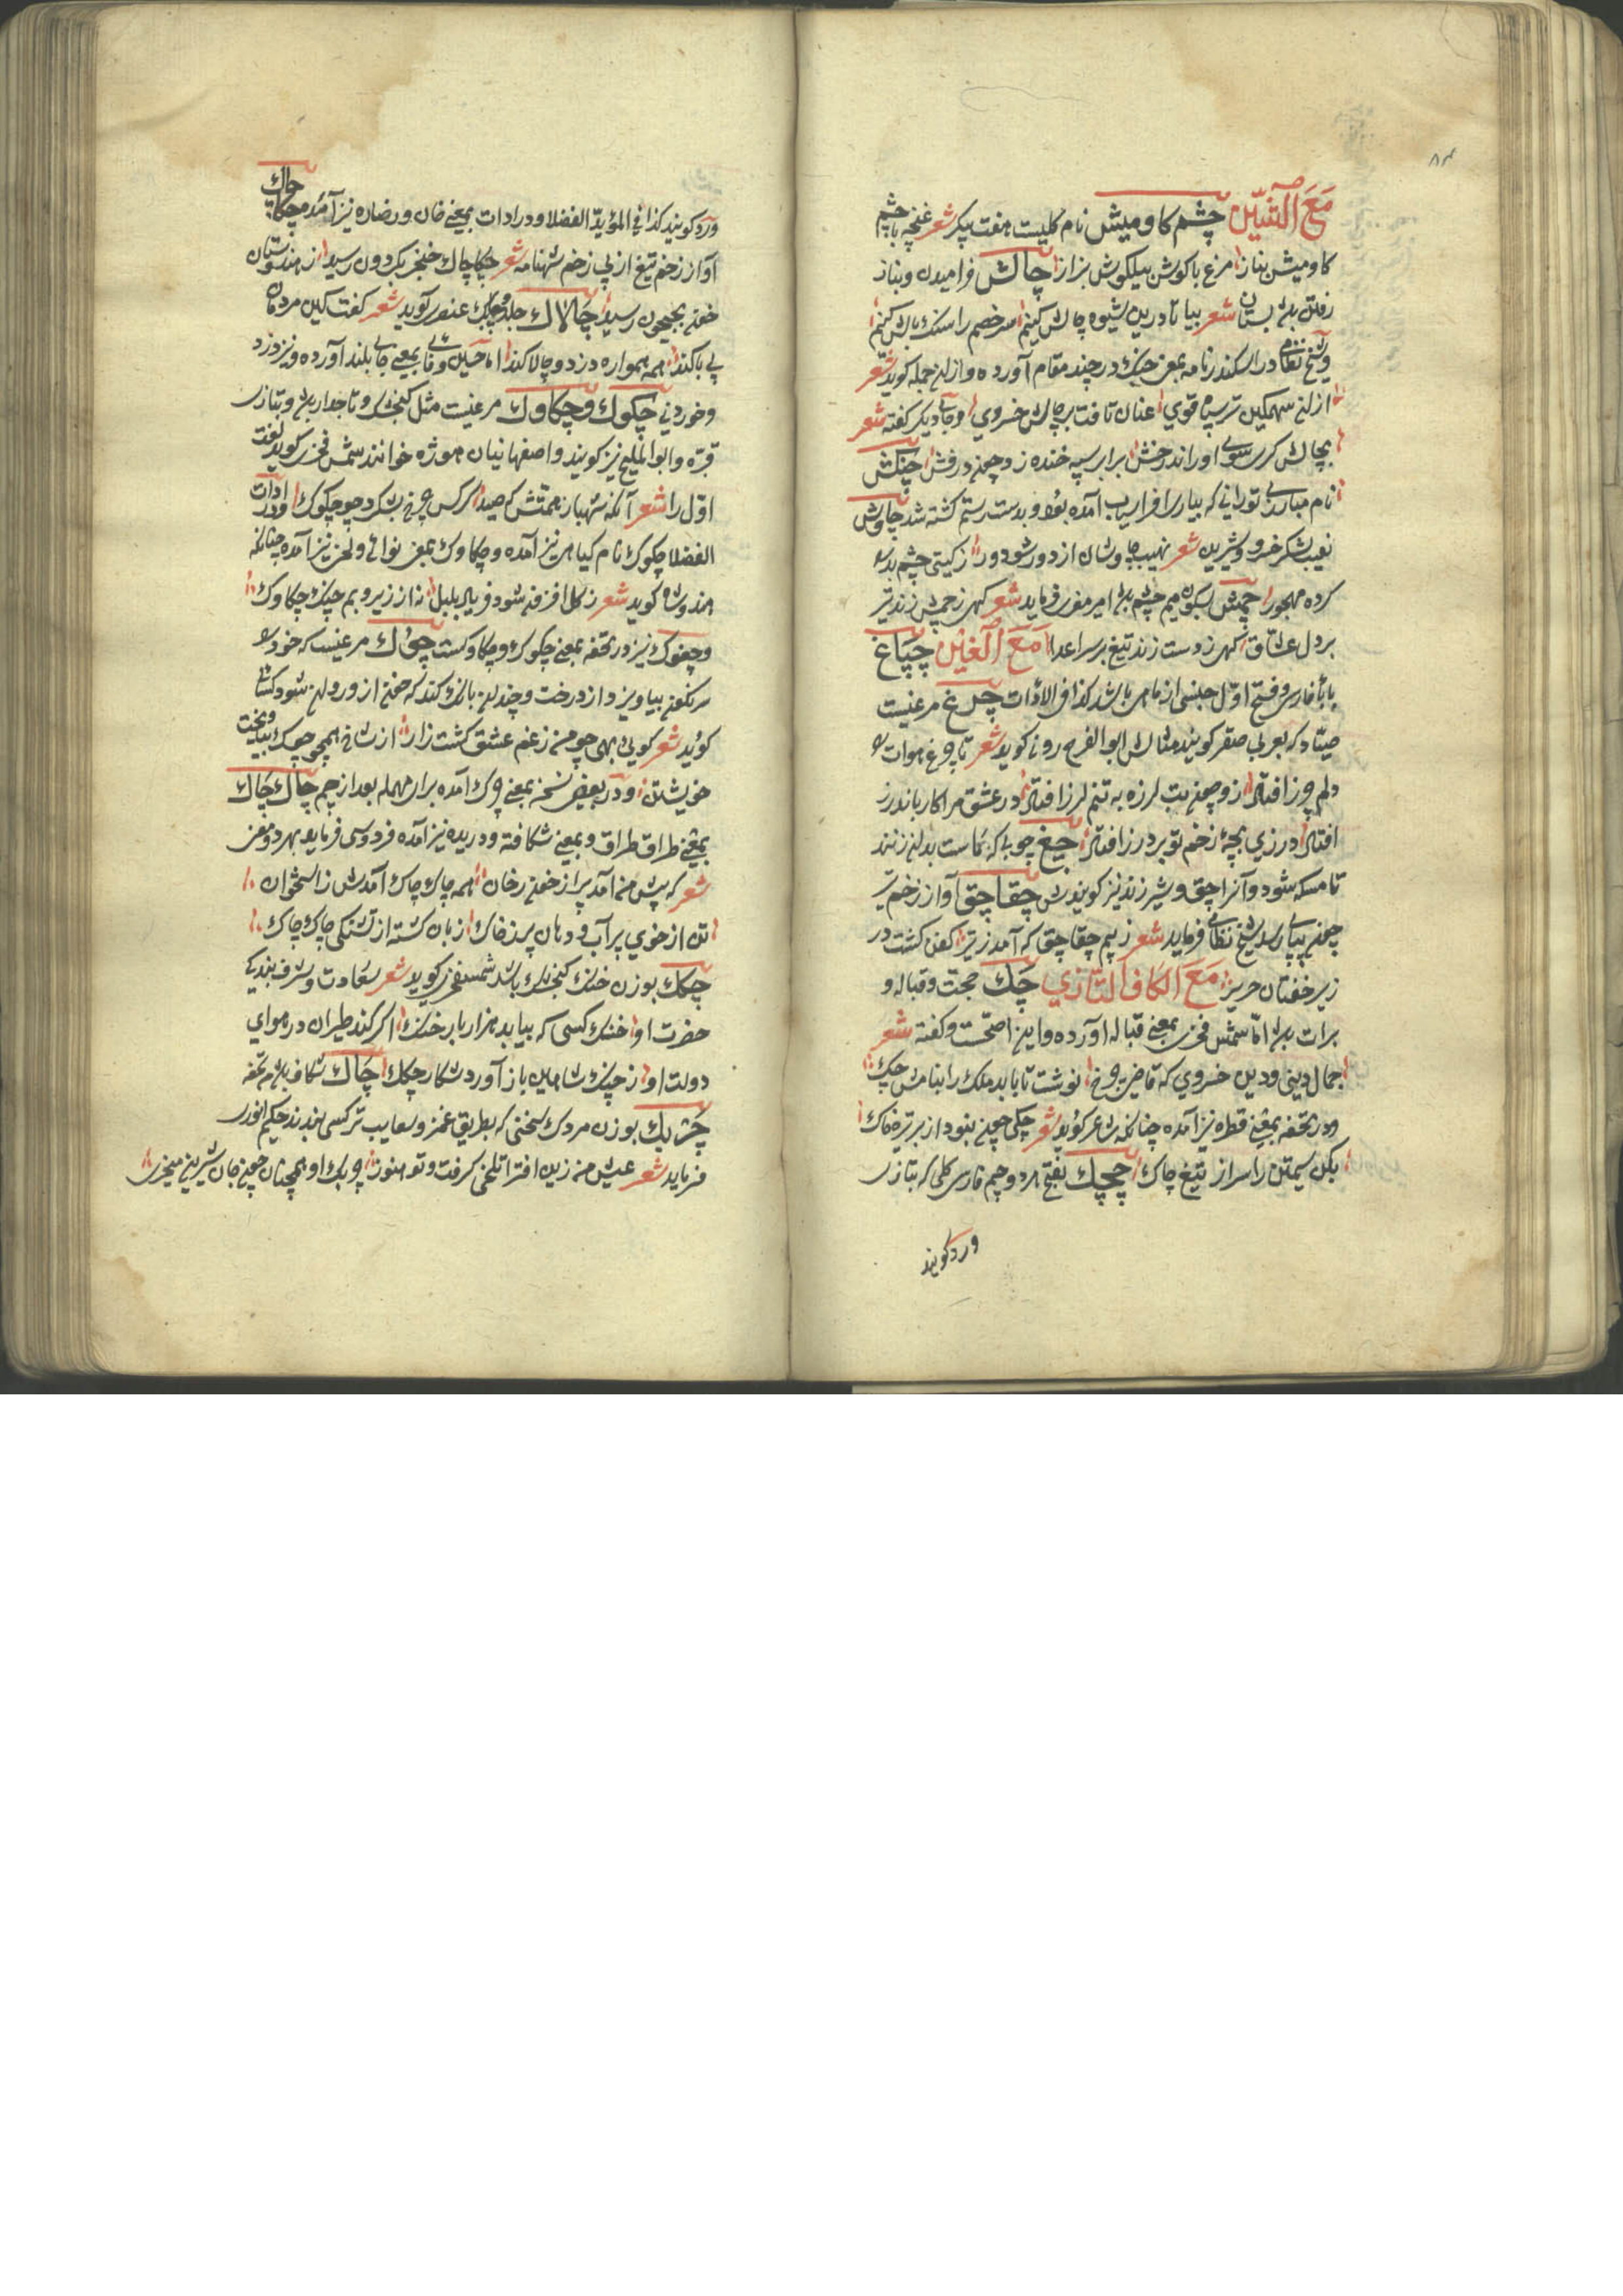 ۸۴
مَعَ الشّين چشم کاومیش نام کلیست هفت پیکر شعر غنچه با چشم
کاومیش بناز مرغ باکوش پیلکوش براز چالش خرامیدن و بناز
رفتن بستان شعر بیا تا درین شیوه چالش کنیم سر خصم را سنک بالش کنیم
و شیخ نظامی در اسکندرنامه بمعنی جنک در چند مقام آورده و از ان جمله کوید شعر
از ان سهمکین تر سپاه قوي عنان تافت بر چالش خسروي و جای دیکر کفته شعر
بچالش کری سوی او راند رخش برابر سیه خنده زد چون درفش چنکش
نام مبارزی تورانی که بیاری افراسیاب آمده بود و بدست رستم کشته شد چاوش
نقیب لشکر خسرو و شیرین شعر نهیب چاوشان از دور شو دور ز کیتی چشم بد
کرده مهجور چمش بسکون میم چشم امیر معزی فرماید شعر کهی ز چمش زند تیر
بر دل عشاق کهی ز دست زند تیغ بر سر اعدا مَعَ الغَین چپاغ
با بأ فارسی و فتح اول جنسی از ماهی باشد کذا فی الادات چرغ مرغیست
صیاد که بعربی صقر کویند مثالش ابو الفرج رونی کوید شعر تا چرغ هوات
دلم ورز افتاد زو چون تب لرزه به تنم لرز افتاد در عشق مرا کار باندرز
افتاد درزی بچهٔ زخم تو بر درز افتاد چغ چوبی که ماست بدان زنند
تا مسکه شود و آنرا چق و شیرزنه نیز کویندش چقاچق آواز زخم تیر
چون پیاپی رسد شیخ نظامی فرماید شعر ز بیم چقاچق که آمد ز تیر کفن کشت در
زیر خفتان حریر مَعَ الکاف التّازي چَك حجت و قباله و
برات اما شمس فخری بمعنی قباله آورده و این اصحّست و کفته شعر
جمال دینی و دین خسروي که قاضی چرخ نوشت تا بابد ملك را بنامش چك
و در تحفه بمعنی قطره نیز آمده چنانکه شاعر کوید شعر چکی خون نبود از بر تیره خاك
بکن سیمتن را سر از تیغ چاك چچك بفتح هر دو جیم فارسی کلی که بتازی
ورد کویند
ورد کویند کذا فی المؤید الفضلا و در ادات بمعنی خان و رضاره نیز آمده چکاچاك
آواز زخم تیغ از پی زخم شهنامه شعر چکاچاك خنجر بکردون رسید ز هندوستان
خون بجیحون رسید چالاك جلد و چابك عنصری کوید شعر کفت کین مردمان
بی باکند همه همواره دزد و چالاکند اما حسین وفایی بمعنی جای بلند آورده و نیز دزد
و خونی چکوك و چکاوك مرغیست مثل کنجشك و تاجدار و بتازی
قبره و ابو الملیح نیز کویند و اصفهانیان هوژه خوانند شمس فخری کوید لغت
اول را شعر آنکه شهباز همتش که صید کرکس چرخ بشکرد چو چکوك و در ادات
الفضلا چکوك نام کیاهی نیز آمده و چکاوك بمعنی نوائی و لحنی نیز آمده چنانکه
هندوشاه کوید شعر ز کل افزون شود فریاد بلبل نه از زیر و بم چنك چکاوك
و چغوك نیز در تحفه بمعنی چکوك و چکاوکست چوك مرغیست که خود
سرنکون بیاویزد از درخت و چندان بانك کند که خون از و روان شود کسائی
کوید شعر کویی بهی چو من ز غم عشق کشت زار از شاخ همچو چوك بیاویخت
خویشتن و در بعضی نسخ بمعنی چرك آمده برای مهمله بعد از جیم چاك چاك
بمعنی طراق طراق و بمعنی شکافته و دریده نیز آمده فردوسی فرماید بهر دو معنی
شعر که پیش من آمد پر از خون رخان همه چاك چاك آمدش ز استخوان
تن از خوي پر آب و دهان پر ز خاك زبان کشته از تشنکی چاك چاك
چکك بوزن خنك کنجشك باشد شمس فخری کوید شعر سعادت و شرف بندکی
حضرت او خنك کسی که بیابد هزار بار خنك اکر کند طیران در هواي
دولت او ز چنك شاهین باز آورد شکار چکك چاك شکاف
چَربك بوزن مردك سخنی که بطریق غمز و سعایت بر کسی بندند حکیم انوری
فرماید شعر عیش من زین افترا تلخی کرفت و تو هنوز چربك او همچنان چون جان شیرین میخری